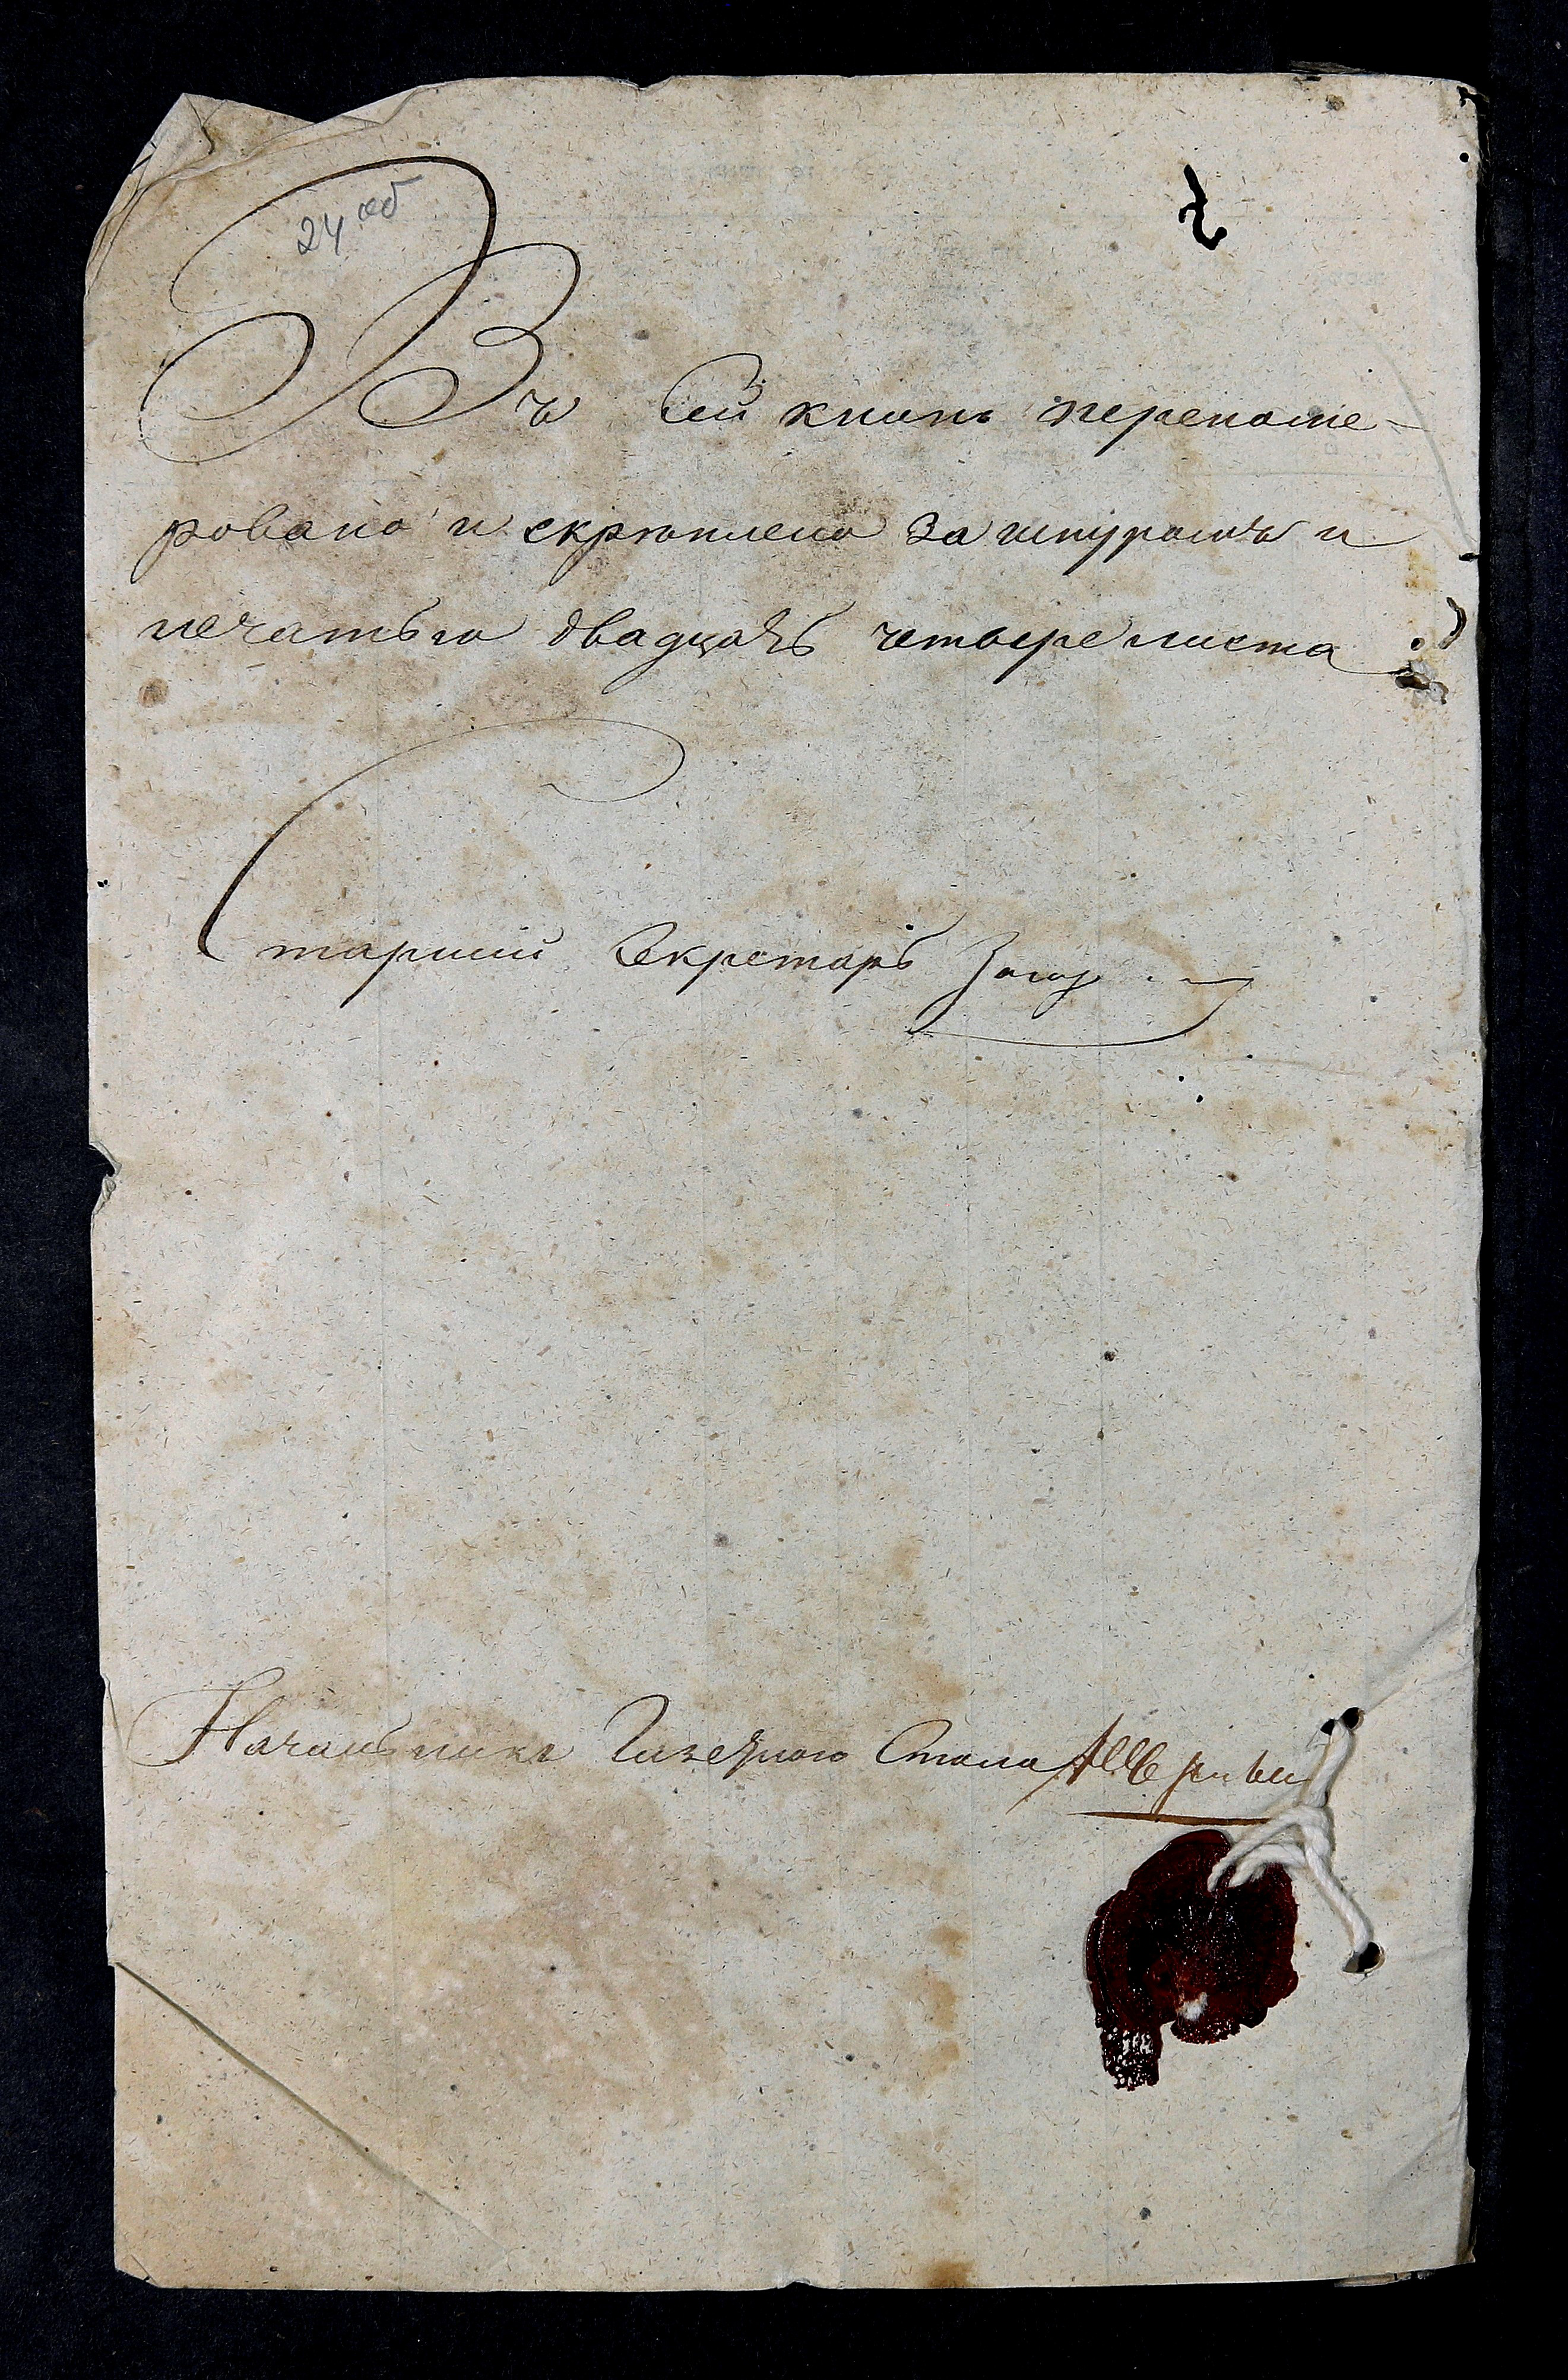 24 об
Въ сей книгѣ перенуме-
ровано и скрѣплено за шнуромъ и
печатью двадцать четыре листа
Старшій Секретарь
Начальникъ Стола